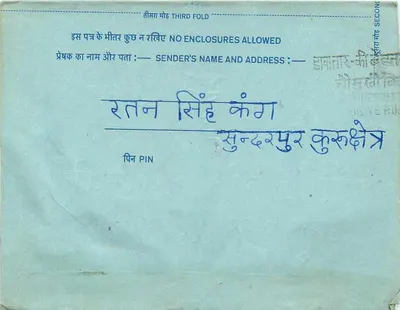 तीसरा मोड़ THIRD FOLD
इस पत्र के भीतर कुछ न रखिए NO ENCLOSURES ALLOWED
प्रेषक का नाम और पता :— SENDER'S NAME AND ADDRESS :—
रतन सिंह कंग
सुन्दरपुर कुरुक्षेत्र
पिन PIN
दूसरा मोड़ SECOND